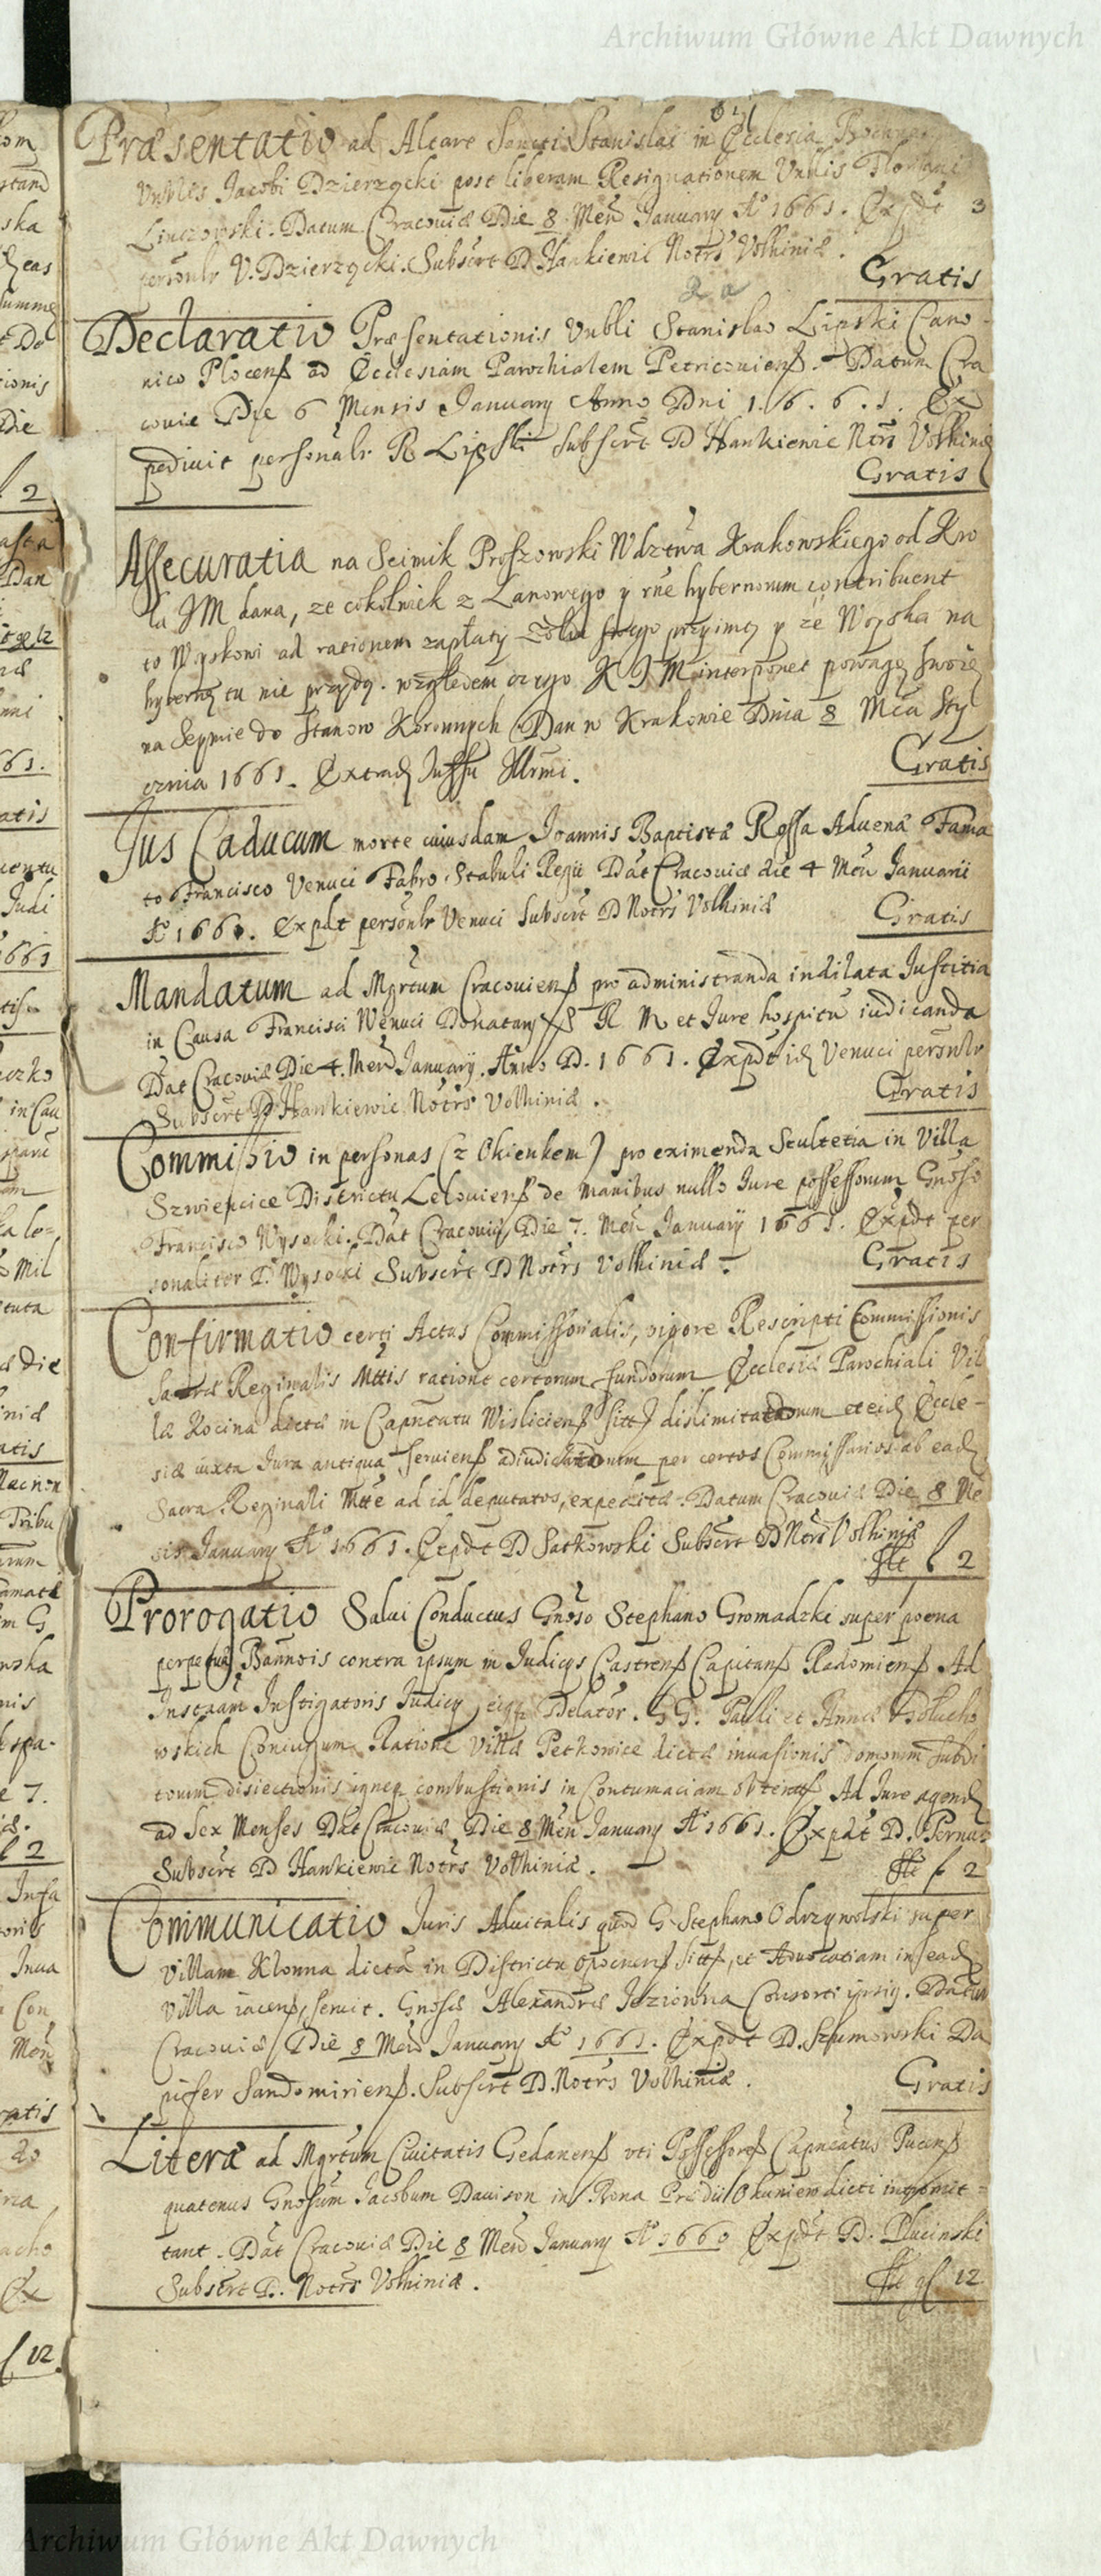 Archiwum Główne Akt Dawnych
Præsentatio ad Altare Sancti Stanislai in Ecclesia
Vnbles Jacobi Dzierzęcki post liberam Resignationem Vnblis Floriani
Datum Cracoviæ Die 8 Men January A° 1661. Expdt 3
personlr V. Dzierzęcki. Subscrt D Hankiewic Notrs Volhiniæ.
Gratis
2 a
Declaratio Præsentationis Vnbli Stanislao Lipski Cano-
nico Plocens ad Ecclesiam Parochialem Petricouiens. Datum Cra
couie Die 6 Mensis January Anno Dni 1.6.6.1. Ex
pediuit personalr R Lipski Subscrt D Hankiewic Notrs Volhiniæ
Gratis
Assecuratia na Seimik Proszowski Wdztwa Krakowskiego od Kro
la JM dana, ze cokolwiek z Lanowego y rne hybernorum contribuent
to Woyskowi ad rationem zapłaty żołdu swego przyimą y że Woyska na
hyberną tu nie przydą. względem czego K J M interponet powagę swoię
na Seymie do Stanow Koronnych Dan w Krakowie Dnia 8 Mca Sty
cznia 1661. Extrad Jussu Illrmi.
Gratis
Jus Caducum morte cuiusdam Joannis Baptistæ Rossa Aduenæ Fama
to Francisco Venuci Fabro Stabuli Regii Dat Cracouiæ die 4 Men Januarii
A° 1661. Expdt personlr Venuci Subscrt D Notrs Volhiniæ
Gratis
Mandatum ad Mgrtum Cracouiens pro administranda indilata Justitia
in Causa Francisci Wenuci Donatary S R M et Jure hospitũ iudicanda
Dat Cracouiæ Die 4. Men January. Anno D. 1661. Expdt id Venuci personlr
Subscrt D Hankiewic Notrs Volhiniæ.
Gratis
Commissio in personas (z Okienkem) pro eximenda Scultetia in Villa
Szwiepcice Districtu Lelouiens de manibus nullo Jure possessorum Gnoso
Francisco Wysocki. Dat Cracouiæ Die 7. Men January 1661. Expdt per
sonaliter D. Wysocki Subscrt D Notrs Volhiniæ.
Gratis
Confirmatio certi Actus Commissorialis, vigore Rescripti Commissionis
Sacræ Reginalis Mttis ratione certorum fundorum Ecclesiæ Parochiali Vil
læ Kocina dictæ in Capneatu Wisliciens sitt dislimitatorum et eid Eccle-
siæ iuxta Jura antiqua seruiens adiudicatorum per certos Commissarios ab ead
Sacra Reginali Mtte ad id deputatos, expeditæ. Datum Cracouiæ Die 8 Me
sis January A° 1661. Expdt D Satkowski Subscrt D Notrs Volhiniæ
flt f 2
Prorogatio Salui Conductus Gnoso Stephano Gromadzki super poena
perpetuæ Bannois contra ipsum in Judicys Castrens Capitans Radomiens Ad
Instaam Instigatoris Judicy eiq Delator. GG. Pauli et Annæ
wskich Coniugum Ratione Villæ Petkowice dictæ inuasionis domorum subdi
torum disiectionis igneq combustionis in Contumaciam obtent Ad Jure agend
ad Sex Menses Dat Cracouiæ Die 8 Men January A° 1661. Expdt D. Pernus
Subscrt D Hankiewic Notrs Volhiniæ.
flt f 2
Communicatio Juris Aduitalis quod G. Stephano Odrzywolski super
Villam Klonna dictã in Districtu Opocnens sitt, et Aduocatiam in ead
Villa iacens, seruit. Gnosæ Alexandræ Consorti ipsig. Datum
Cracouiæ Die 8 Men January A° 1661. Expdt D. Szumowski Da
pifer Sandomiriens. Subscrt D. Notrs Volhiniæ.
Gratis
Literæ ad Mgrtum Ciuitatis Gedanens vti Possessores Capneatus Pucens
quatenus Gnosum Jacobum Dauison in Bona Prædii Okuniew dicti intromit=
tant. Dat Cracouiæ Die 8 Men January A° 1660 Expdt D. Plucinski
Subscrt D. Notrs Volhiniæ.
flt gl 12
Archiwum Główne Akt Dawnych